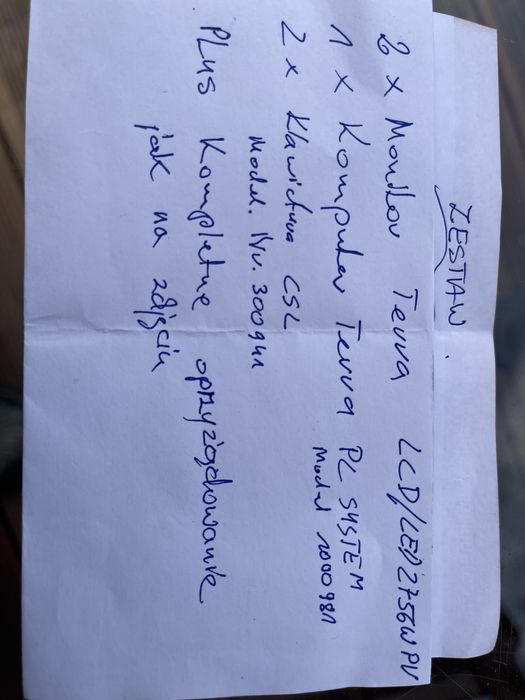 ZESTAW.
2 x Monitor Terra LCD/LED 2756W PV
1 x Komputer Terra PC SYSTEM
Model 1000981
2 x Klawiatura CSL
Model. Nr. 300941
PLUS Kompletne oprzyrządowanie
jak na zdjęciu